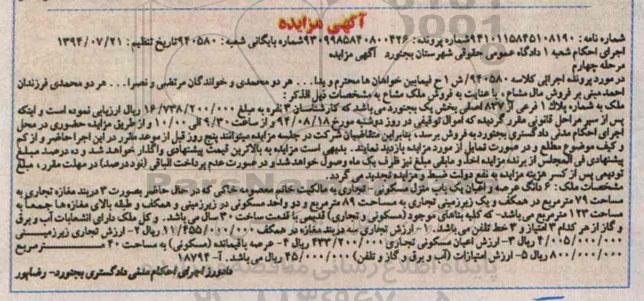 آگهی مزایده
شماره نامه: ۹۴۱۰۱۱۵۸۴۵۱۰۸۱۹۰ شماره پرونده: ۹۳۰۹۹۸۵۸۴۰۸۰۰۴۲۶ شماره بایگانی شعبه: ۹۴۰۵۸۰ تاریخ تنظیم: ۱۳۹۴/۰۷/۲۱
اجرای احکام شعبه ۱ دادگاه عمومی حقوقی شهرستان بجنورد آگهی مزایده
مرحله چهارم
در مورد پرونده اجرایی کلاسه ۹۴۰۵۸۰/ش ا ح فیمابین خواهان ها محترم و یدا... هر دو محمدی و خواندگان مرتضی و نصرا... هر دو محمدی فرزندان
احمد مبنی بر فروش مال مشاع، با عنایت به فروش ملک مشاع به مشخصات ذیل الذکر:
ملک به شماره پلاک ۱ فرعی از ۸۲۷ اصلی بخش یک بجنورد می باشد که کارشناسان ۳ نفره به مبلغ ۱۶/۷۳۸/۲۰۰/۰۰۰ ریال ارزیابی نموده است و اینکه
پس از سیر مراحل قانونی مقرر گردیده که اموال توقیفی در روز دوشنبه مورخ ۹۴/۰۸/۱۸ از ساعت ۹/۳۰ الی ۱۰/۰۰ و از طریق مزایده حضوری در محل
اجرای احکام مدنی دادگستری بجنورد به فروش برسد، بنابراین متقاضیان شرکت در جلسه مزایده میتوانند پنج روز قبل از موعد مقرر در این اجرا حاضر و از کم
و کیف موضوع مطلع و در صورت تمایل از مورد مزایده بازدید نمایند. بدیهی است مزایده به بالاترین قیمت پیشنهادی واگذار خواهد شد و ده درصد مبلغ
پیشنهادی فی المجلس از برنده مزایده اخذ و مابقی مبلغ نیز ظرف یک ماه وصول خواهد شد و در صورت عدم پرداخت الباقی (نود درصد) در مهلت مقرر، مبلغ
تودیعی پس از کسر هزینه مزایده به نفع دولت ضبط و مزایده تجدید می گردد.
مشخصات ملک: ۶ دانگ عرصه و اعیان یک باب منزل مسکونی - تجاری به مالکیت خانم معصومه خاکی که در حال حاضر بصورت ۳ دربند مغازه تجاری به
مساحت ۷۹ مترمربع در همکف و یک زیرزمینی تجاری به مساحت ۸۹ مترمربع و دو واحد مسکونی در زیرزمینی و همکف و طبقه بالای مغازه ها جمعا به
مساحت ۱۲۳ مترمربع می باشد- که کلیه بناهای موجود (مسکونی و تجاری) قدیمی با قدمت ساخت ۳۰ سال می باشد. و کل ملک دارای انشعابات آب و برق
و گاز از هر کدام ۳ امتیاز و ۳ خط تلفن می باشد. ۱- ارزش تجاری سه دربند مغازه در همکف ۱۱/۴۵۵/۰۰۰/۰۰۰ ریال ۲- ارزش تجاری زیرزمینی
۴/۰۰۵/۰۰۰/۰۰۰ ریال ۳- ارزش اعیان مسکونی تجاری ۴۳۳/۲۰۰/۰۰۰ ریال ۴- عرصه باقیمانده (مسکونی) به مساحت ۴۰ مترمربع
۸۰۰/۰۰۰/۰۰۰ ریال ۵- ارزش امتیازات (آب و برق و گاز و تلفن) ۴۵/۰۰۰/۰۰۰ ریال می باشد. آ- ۱۸۷۹۴
دادورز اجرای احکام مدنی دادگستری بجنورد- رضاپور